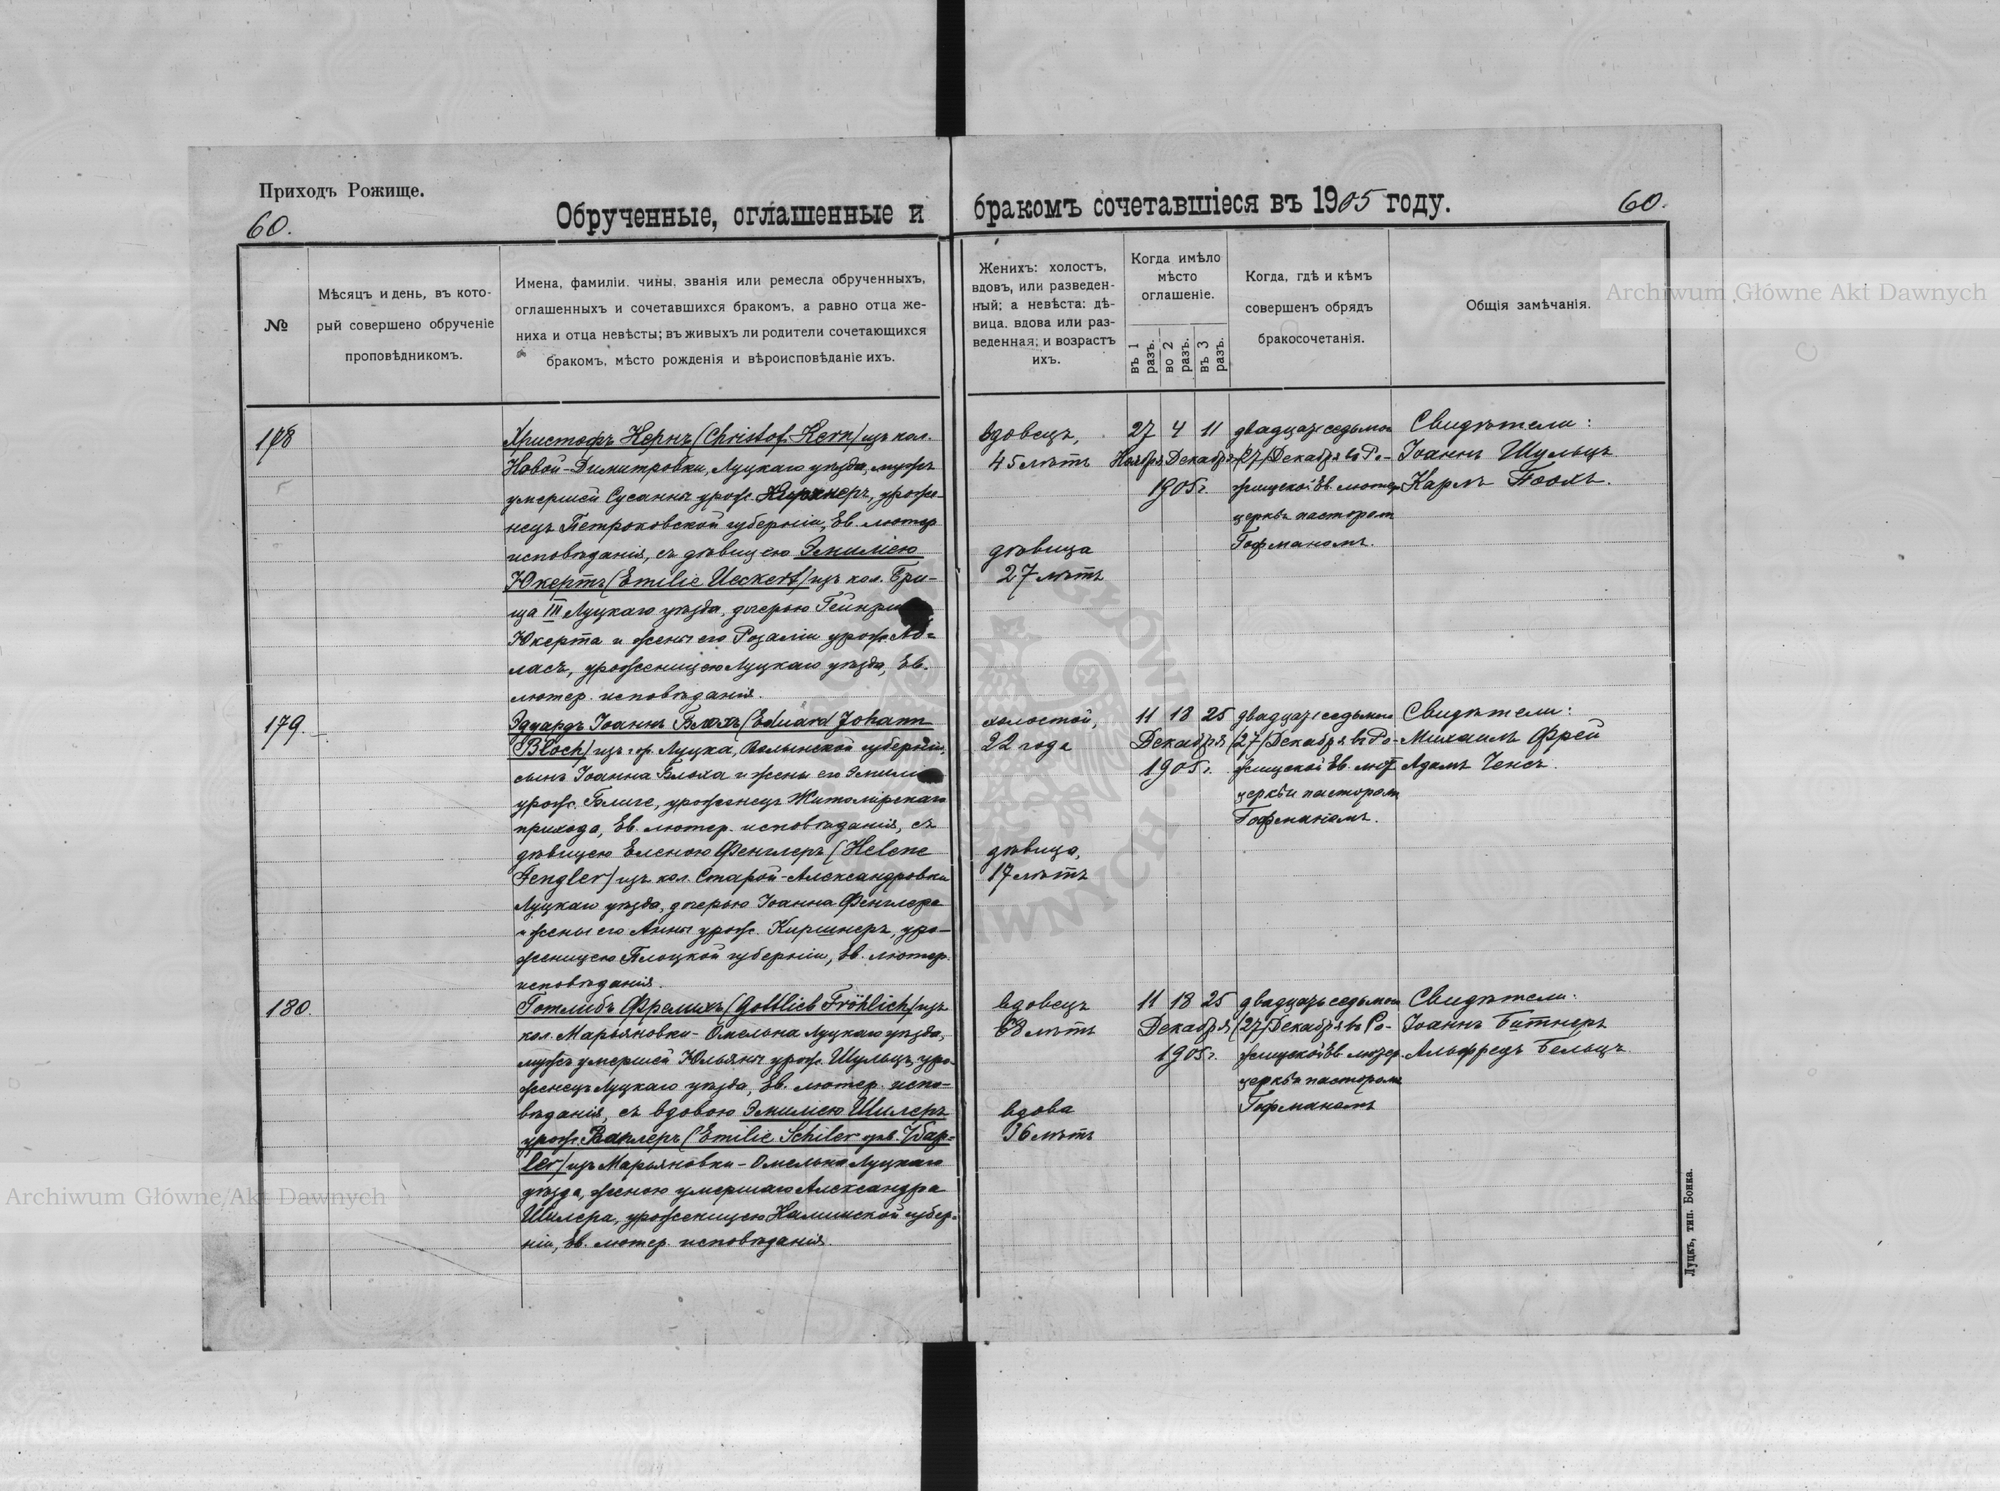 Приходъ Рожище.
60.
Обрученные, оглашенные и
бракомъ сочетавшіеся въ 1905 году.
60.
№
Мѣсяцъ и день, въ кото-
рый совершено обрученіе
проповѣдникомъ.
Имена, фамиліи, чины, званія или ремесла обрученныхъ,
оглашенныхъ и сочетавшихся бракомъ, а равно отца же-
ниха и отца невѣсты; въ живыхъ ли родители сочетающихся
бракомъ, мѣсто рожденія и вѣроисповѣданіе ихъ.
Женихъ: холостъ,
вдовъ, или разведен-
ный; а невѣста: дѣ-
вица, вдова или раз-
веденная; и возрастъ
ихъ.
Когда имѣло
мѣсто
оглашеніе.
въ 1 разъ.
во 2 разъ.
въ 3 разъ.
Когда, гдѣ и кѣмъ
совершенъ обрядъ
бракосочетанія.
Общія замѣчанія.
178
Христофъ Кернъ (Christof Kern) изъ кол.
Новой-Димитровки, Луцкаго уѣзда, мужъ
умершей Сусанны урож. уроже-
нецъ Петроковской губерніи, Ев. лютер.
исповѣданія, съ дѣвицею Эмиліею
Юкертъ (Emilie Ueckert) изъ кол. Бри-
ща III Луцкаго уѣзда, дочерью
Юкерта и жены его Розаліи урож.
уроженицею Луцкаго уѣзда, Ев.
лютер. исповѣданія.
вдовецъ,
45 лѣтъ
дѣвица
27 лѣтъ
27 4 11
Ноября Декабря
1905 г.
двадцать седьмого
(27) Декабря въ Ро-
жищской Ев. лютер.
церкви пасторомъ
Гофманомъ.
Свидѣтели:
Іоаннъ Шульцъ
Карлъ
179.
Эдуардъ Іоаннъ Блохъ (Eduard Johann
Bloch) изъ гор. Луцка, Волынской губерніи,
сынъ Іоанна Блоха и жены его
урож. уроженецъ Житомірскаго
прихода, Ев. лютер. исповѣданія, съ
дѣвицею Еленою Фенглеръ (Helene
Fengler) изъ кол. Старой-Александровки
Луцкаго уѣзда, дочерью Іоанна Фенглера
и жены его Анны урож. Киршнеръ, уро-
женицею Плоцкой губерніи, Ев. лютер.
исповѣданія.
холостой,
22 года
дѣвица,
17 лѣтъ
11 18 25
Декабря
1905 г.
двадцать седьмого
(27) Декабря въ Ро-
жищской Ев. лют.
церкви пасторомъ
Гофманомъ.
Свидѣтели:
Михаилъ Фрей
Адамъ
180.
Готлибъ Фрелихъ (Gottlieb Fröhlich) изъ
кол. Марьяновки-Омельна Луцкаго уѣзда,
мужъ умершей Юльяны урож. Шульцъ, уро-
женецъ Луцкаго уѣзда, Ев. лютер. испо-
вѣданія, съ вдовою Эмиліею Шилеръ
урож. (Emilie Schiler
изъ Марьяновки-Омельна Луцкаго
уѣзда, женою умершаго Александра
Шилера, уроженицею Калишской губер-
ніи, Ев. лютер. исповѣданія.
вдовецъ
68 лѣтъ
вдова
36 лѣтъ
11 18 25
Декабря
1905 г.
двадцать седьмого
(27) Декабря въ Ро-
жищской Ев. лютер.
церкви пасторомъ
Гофманомъ
Свидѣтели:
Іоаннъ Битнеръ
Альфредъ Бельцъ.
Луцкъ, тип. Бонка.
Archiwum Główne Akt Dawnych
Archiwum Główne Akt Dawnych